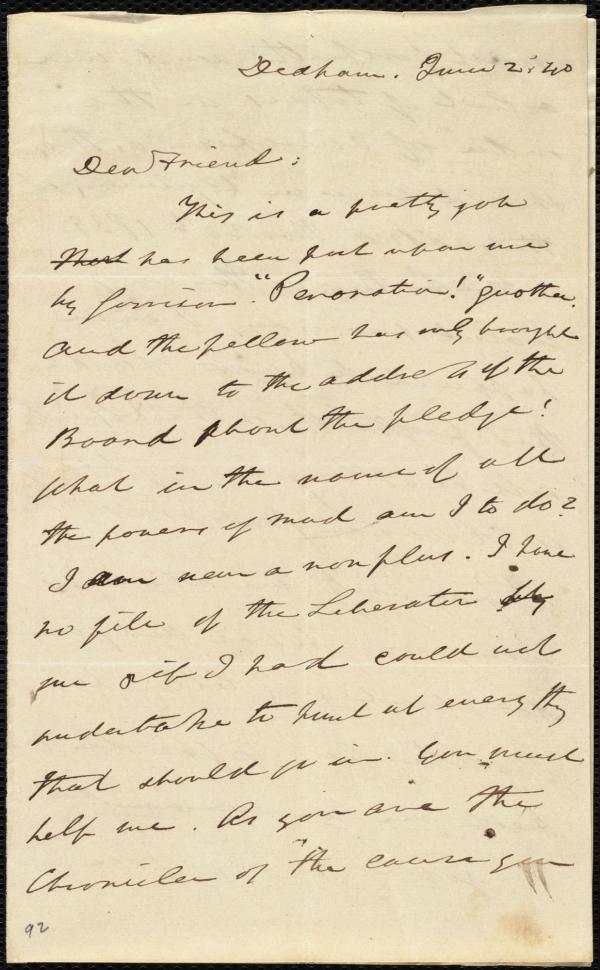 Dedham. June 2. 40
Dear Friend:
This is a pretty job
that has been put upon me
by Garrison. "Peroration!" quotha.
And the fellow has only brought
it down to the address of the
Board about the pledge!
What in the name of all
the powers of mud am I to do?
I am near a nonplus. I have
no file of the Liberator by
me & if I had could not
undertake to hunt up every thing
that should go in. You must
help me. As you are the
Chronicler of "the cause you
92